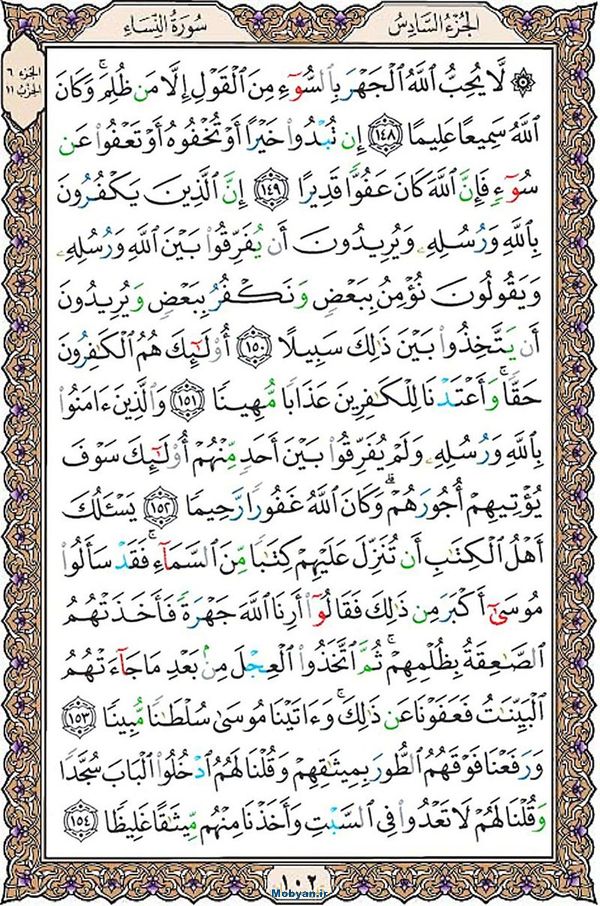 الجُزءُ السَّادِسُ
سُورَةُ النِّسَاءِ
الجزء ٦
الحزب ١١
۞ لَّا يُحِبُّ ٱللَّهُ ٱلْجَهْرَ بِٱلسُّوٓءِ مِنَ ٱلْقَوْلِ إِلَّا مَن ظُلِمَ ۚ وَكَانَ
ٱللَّهُ سَمِيعًا عَلِيمًا ١٤٨ إِن تُبْدُوا۟ خَيْرًا أَوْ تُخْفُوهُ أَوْ تَعْفُوا۟ عَن
سُوٓءٍ فَإِنَّ ٱللَّهَ كَانَ عَفُوًّا قَدِيرًا ١٤٩ إِنَّ ٱلَّذِينَ يَكْفُرُونَ
بِٱللَّهِ وَرُسُلِهِۦ وَيُرِيدُونَ أَن يُفَرِّقُوا۟ بَيْنَ ٱللَّهِ وَرُسُلِهِۦ
وَيَقُولُونَ نُؤْمِنُ بِبَعْضٍ وَنَكْفُرُ بِبَعْضٍ وَيُرِيدُونَ
أَن يَتَّخِذُوا۟ بَيْنَ ذَٰلِكَ سَبِيلًا ١٥٠ أُو۟لَـٰٓئِكَ هُمُ ٱلْكَـٰفِرُونَ
حَقًّا ۚ وَأَعْتَدْنَا لِلْكَـٰفِرِينَ عَذَابًا مُّهِينًا ١٥١ وَٱلَّذِينَ ءَامَنُوا۟
بِٱللَّهِ وَرُسُلِهِۦ وَلَمْ يُفَرِّقُوا۟ بَيْنَ أَحَدٍ مِّنْهُمْ أُو۟لَـٰٓئِكَ سَوْفَ
يُؤْتِيهِمْ أُجُورَهُمْ ۗ وَكَانَ ٱللَّهُ غَفُورًا رَّحِيمًا ١٥٢ يَسْـَٔلُكَ
أَهْلُ ٱلْكِتَـٰبِ أَن تُنَزِّلَ عَلَيْهِمْ كِتَـٰبًا مِّنَ ٱلسَّمَآءِ ۚ فَقَدْ سَأَلُوا۟
مُوسَىٰٓ أَكْبَرَ مِن ذَٰلِكَ فَقَالُوٓا۟ أَرِنَا ٱللَّهَ جَهْرَةً فَأَخَذَتْهُمُ
ٱلصَّـٰعِقَةُ بِظُلْمِهِمْ ۚ ثُمَّ ٱتَّخَذُوا۟ ٱلْعِجْلَ مِنۢ بَعْدِ مَا جَآءَتْهُمُ
ٱلْبَيِّنَـٰتُ فَعَفَوْنَا عَن ذَٰلِكَ ۚ وَءَاتَيْنَا مُوسَىٰ سُلْطَـٰنًا مُّبِينًا ١٥٣
وَرَفَعْنَا فَوْقَهُمُ ٱلطُّورَ بِمِيثَـٰقِهِمْ وَقُلْنَا لَهُمُ ٱدْخُلُوا۟ ٱلْبَابَ سُجَّدًا
وَقُلْنَا لَهُمْ لَا تَعْدُوا۟ فِى ٱلسَّبْتِ وَأَخَذْنَا مِنْهُم مِّيثَـٰقًا غَلِيظًا ١٥٤
١٠٢
Mobyan.ir